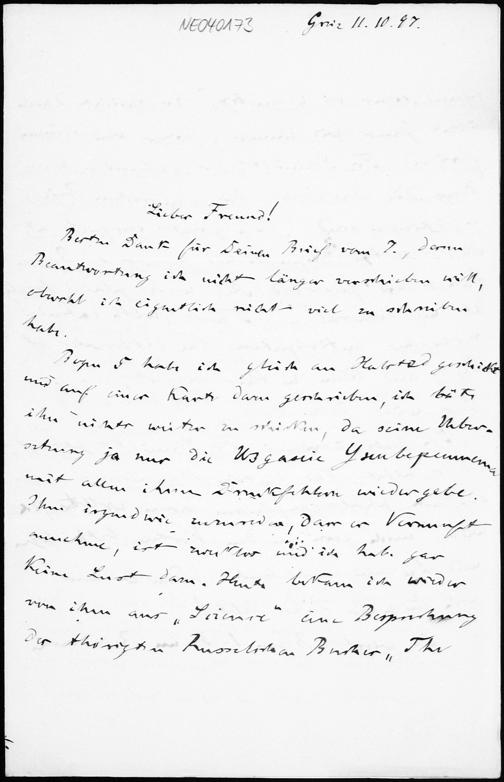 NE040173
Graz 11.10.97.
Lieber Freund!
Besten Dank für Deinen Brief vom 7., deren
Beantwortung ich nicht länger verschieben will,
obwohl ich eigentlich nicht viel zu schreiben
habe.
Bogen 5 habe ich gleich an Halsted geschickt
und auf einer Karte dazu geschrieben, ich bitte
ihn weiter zu schicken, da seine Ueber-
setzung ja nur die
mit allen ihren Druckfehlern wiedergebe.
Ihm irgendwie zureden, dass er Vernunft
annehme, ist zwecklos und ich habe gar
keine Lust dazu. Heute bekam ich wieder
von ihm aus „Science" eine Besprechung
der thörigten Russelschen Buches „The